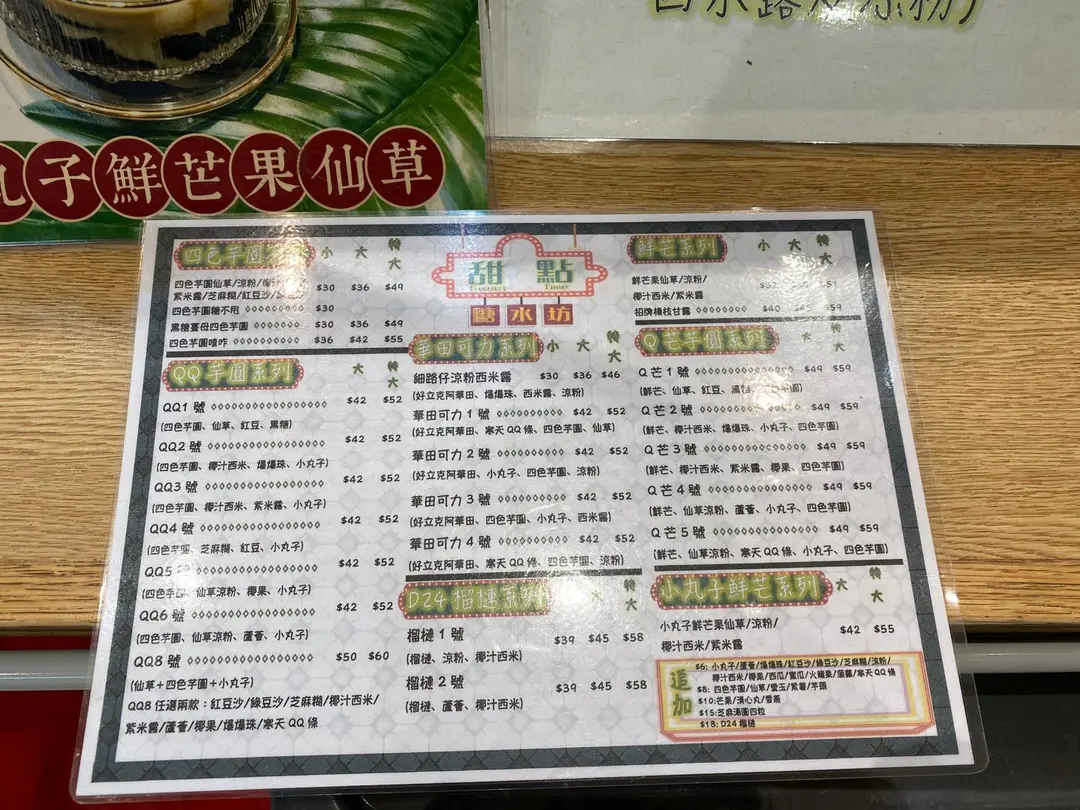 丸子鮮芒果仙草
甜點
糖水坊
四色芋圓 小 大 特大
四色芋圓仙草/涼粉/
紫米露/芝麻糊/紅豆沙/ $30 $36 $49
四色芋圓糖不甩 $30
黑糖薑母四色芋圓 $30 $36 $49
四色芋圓喳咋 $36 $42 $55
QQ芋圓系列 大 特大
QQ1號 $42 $52
(四色芋圓、仙草、紅豆、黑糖)
QQ2號 $42 $52
(四色芋圓、椰汁西米、爆爆珠、小丸子)
QQ3號 $42 $52
(四色芋圓、椰汁西米、紫米露、小丸子)
QQ4號 $42 $52
(四色芋圓、芝麻糊、紅豆、小丸子)
QQ5號 $42 $52
(四色芋圓、仙草涼粉、椰果、小丸子)
QQ6號 $42 $52
(四色芋圓、仙草涼粉、蘆薈、小丸子)
QQ8號 $50 $60
(仙草+四色芋圓+小丸子)
QQ8任選兩款：紅豆沙/綠豆沙/芝麻糊/椰汁西米/
紫米露/蘆薈/椰果/爆爆珠/寒天QQ條
華田可力系列 小 大 特大
細路仔涼粉西米露 $30 $36 $46
(好立克阿華田、爆爆珠、西米露、涼粉)
華田可力1號 $42 $52
(好立克阿華田、寒天QQ條、四色芋圓、仙草)
華田可力2號 $42 $52
(好立克阿華田、小丸子、四色芋圓、涼粉)
華田可力3號 $42 $52
(好立克阿華田、四色芋圓、小丸子、西米露)
華田可力4號 $42 $52
(好立克阿華田、寒天QQ條、四色芋圓、涼粉)
D24榴槤系列 大 特大
榴槤1號 $39 $45 $58
(榴槤、涼粉、椰汁西米)
榴槤2號 $39 $45 $58
(榴槤、蘆薈、椰汁西米)
鮮芒系列 小 大 特大
鮮芒果仙草/涼粉/
椰汁西米/紫米露 $51
招牌楊枝甘露 $40 $59
Q芒芋圓系列 大 特大
Q芒1號 $49 $59
(鮮芒、仙草、紅豆、
Q芒2號 $49 $59
(鮮芒、椰汁西米、爆爆珠、小丸子、四色芋圓)
Q芒3號 $49 $59
(鮮芒、椰汁西米、紫米露、椰果、四色芋圓)
Q芒4號 $49 $59
(鮮芒、仙草涼粉、蘆薈、小丸子、四色芋圓)
Q芒5號 $49 $59
(鮮芒、仙草涼粉、寒天QQ條、小丸子、四色芋圓)
小丸子鮮芒系列 大 特大
小丸子鮮芒果仙草/涼粉/ $42 $55
椰汁西米/紫米露
追加
$6: 小丸子/蘆薈/爆爆珠/紅豆沙/綠豆沙/芝麻糊/涼粉/
椰汁西米/椰果/西瓜/蜜瓜/火龍果/菠蘿/寒天QQ條
$8: 四色芋圓/仙草/愛玉/紫薯/芋頭
$10:芒果/流心丸/雪燕
$15:芝麻湯圓四粒
$18: D24榴槤